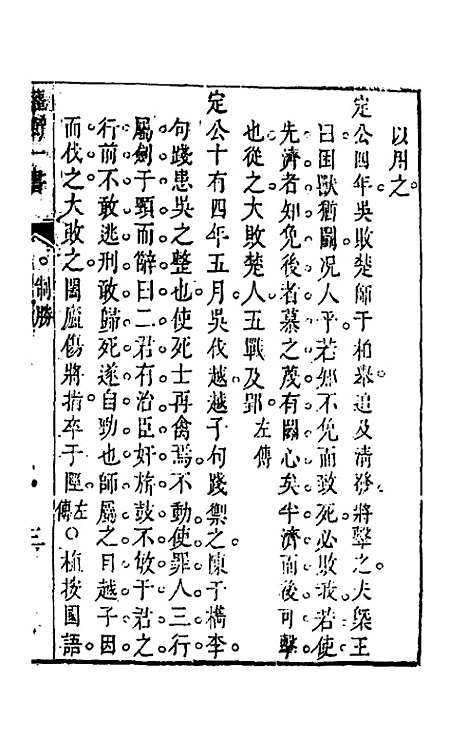 以用之
定公四年吳敗楚師于柏舉追及清發將擊之夫槩王
曰困獸猶鬭况人乎若知不免而致死必敗我若使
先濟者知免後者慕之蔑有鬭心矣半濟而後可擊
也從之大敗楚人五戰及郢左傳
定公十有四年五月吳伐越越子句踐禦之陳于檇李
句踐患吳之整也使死士再禽焉不動使罪人三行
屬劍于頸而辭曰二君有治臣奸旂鼓不敏于君之
行前不敢逃刑敢歸死遂自剄也師屬之目越子因
而伐之大敗之闔廬傷將指卒于陘左傳○植按國語
一書 制勝 三